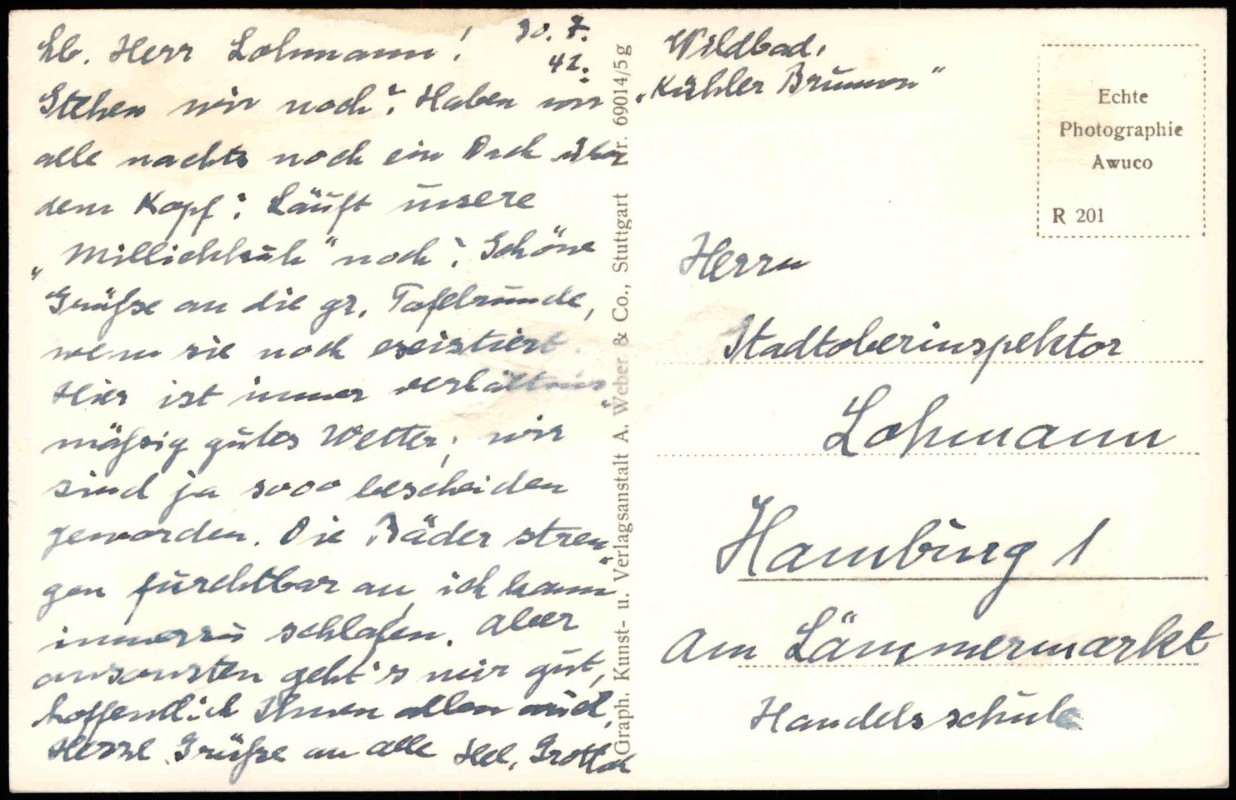 Lb. Herr Lohmann! 30. 7. 42.
Stehen wir noch? Haben wir
alle nachts noch ein Dach über
dem Kopf? Läuft unsere
„Millichkuh" noch? Schöne
Grüße an die gr. Tafelrunde,
wenn sie noch existiert.
Hier ist immer verhältnis-
mäßig gutes Wetter; wir
sind ja sooo bescheiden
geworden. Die Bäder stren-
gen furchtbar an, ich kann
immerzu schlafen. Aber
ansonsten geht's mir gut,
hoffentlich Ihnen allen auch.
Herzl. Grüße an alle Hel.
Graph. Kunst- u. Verlagsanstalt A. Weber & Co., Stuttgart Nr. 69014/5 g
Wildbad,
„Kühler Brunnen"
Echte
Photographie
Awuco
R 201
Herrn
Stadtoberinspektor
Lohmann
Hamburg 1
Am Lämmermarkt
Handelsschule